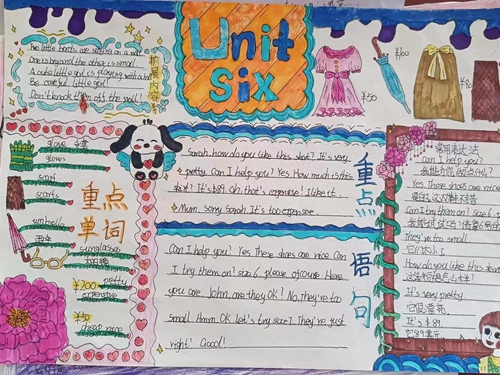 Unit
Six
Two little boats are sitting on a wall
One is big and the other is small
A cute little girl is playing with a ball
Be careful little girl!
Don't knock them off the wall!
扩展内容
¥50
¥100
glove 手套
gloves
scarf
scarfs
umbrella
雨伞
sunglasses
太阳镜
¥200 pretty
expensive
¥50
cheap nice
重点
单词
Sarah, how do you like this skirt? It's very
pretty. Can I help you? Yes How much is this
skirt? It's $89. Oh, that's expensive! I like it,
Mum. Sorry Sarah. It's too expensive.
Can I help you? Yes These shoes are nice. Can
I try them on? size 6, please ofcourse. Here
you are. John, are they OK? No, they're too
small. Hmm OK. let's try size 7. They're just
right! Good!
重点语句
常用表达法
Can I help you?
Yes These shoes are nice
Can I try them on? size 6
They're too small
它们太小了
How do you like this skirt
It's very pretty.
它很漂亮
It's $89
它89美元